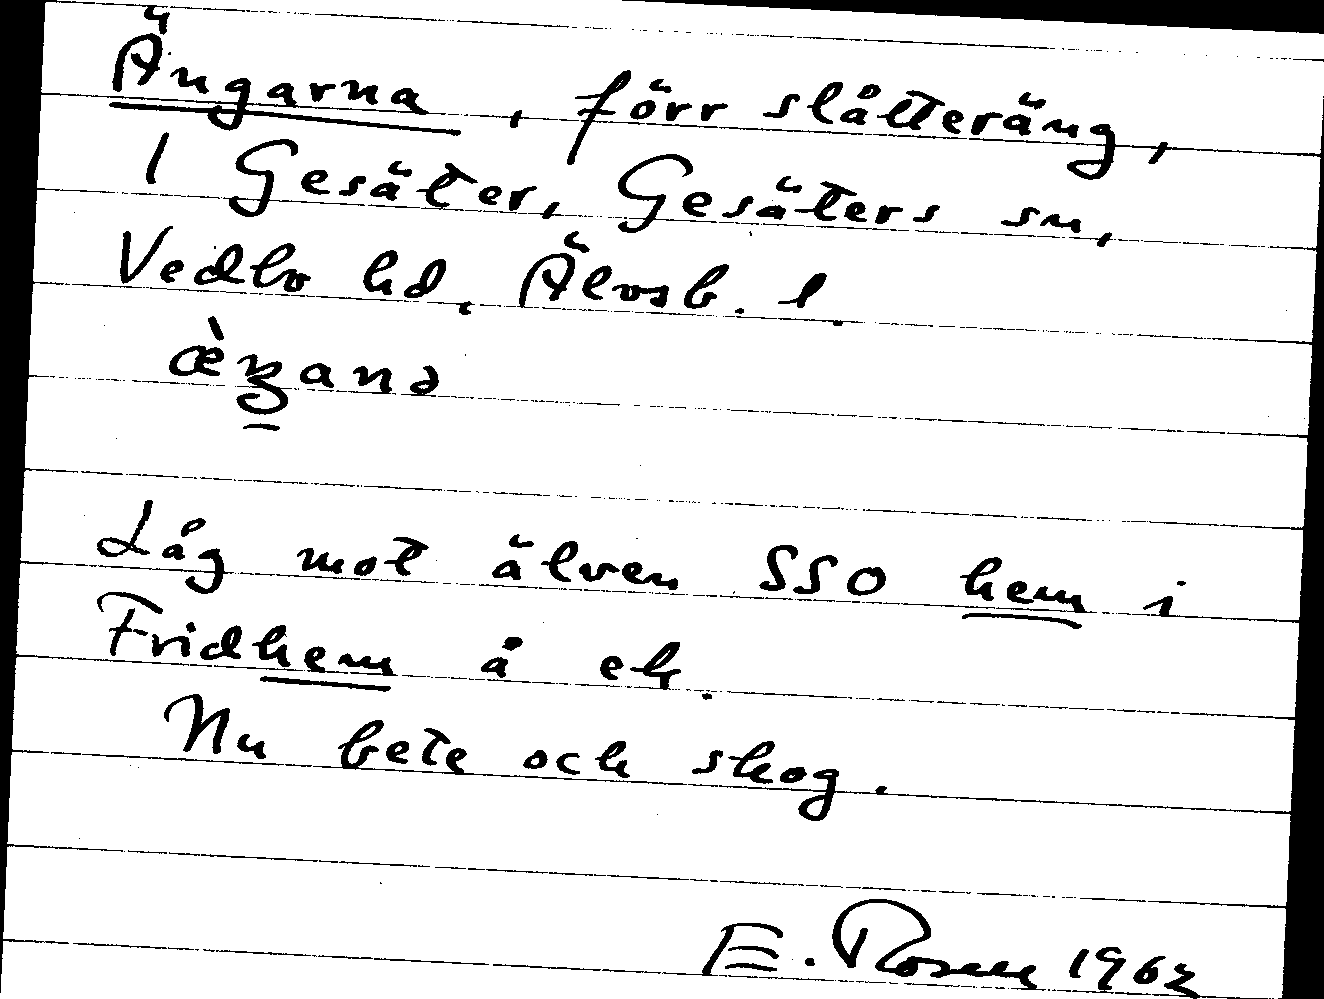 Ängarna, förr slåtteräng,
1 Gesäter, Gesäters sn,
Vedbo hd, Älvsb. l.
Låg mot älven SSO hem i
Fridhem å ek.
Nu bete och skog.
E. Rosen 1962